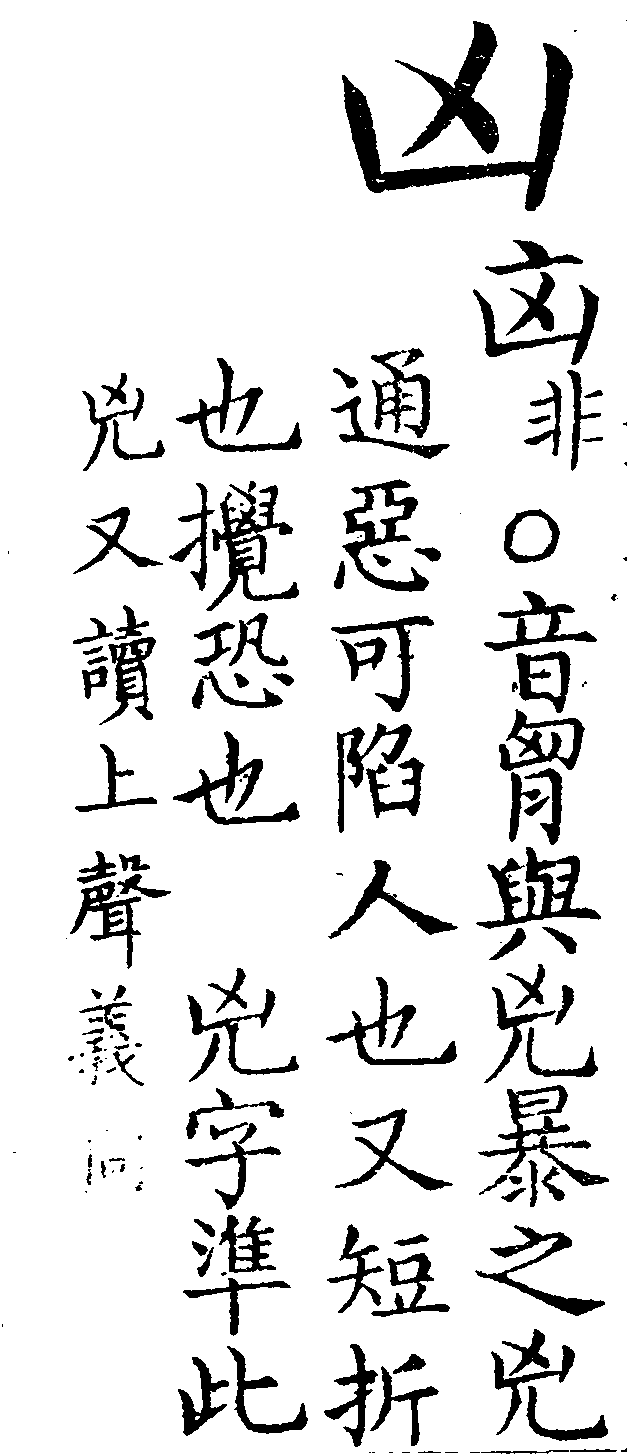 凶
㐫非○音胷與兇暴之兇
通惡可陷人也又短折
也攪恐也　兇字準此
兇又讀上聲義同